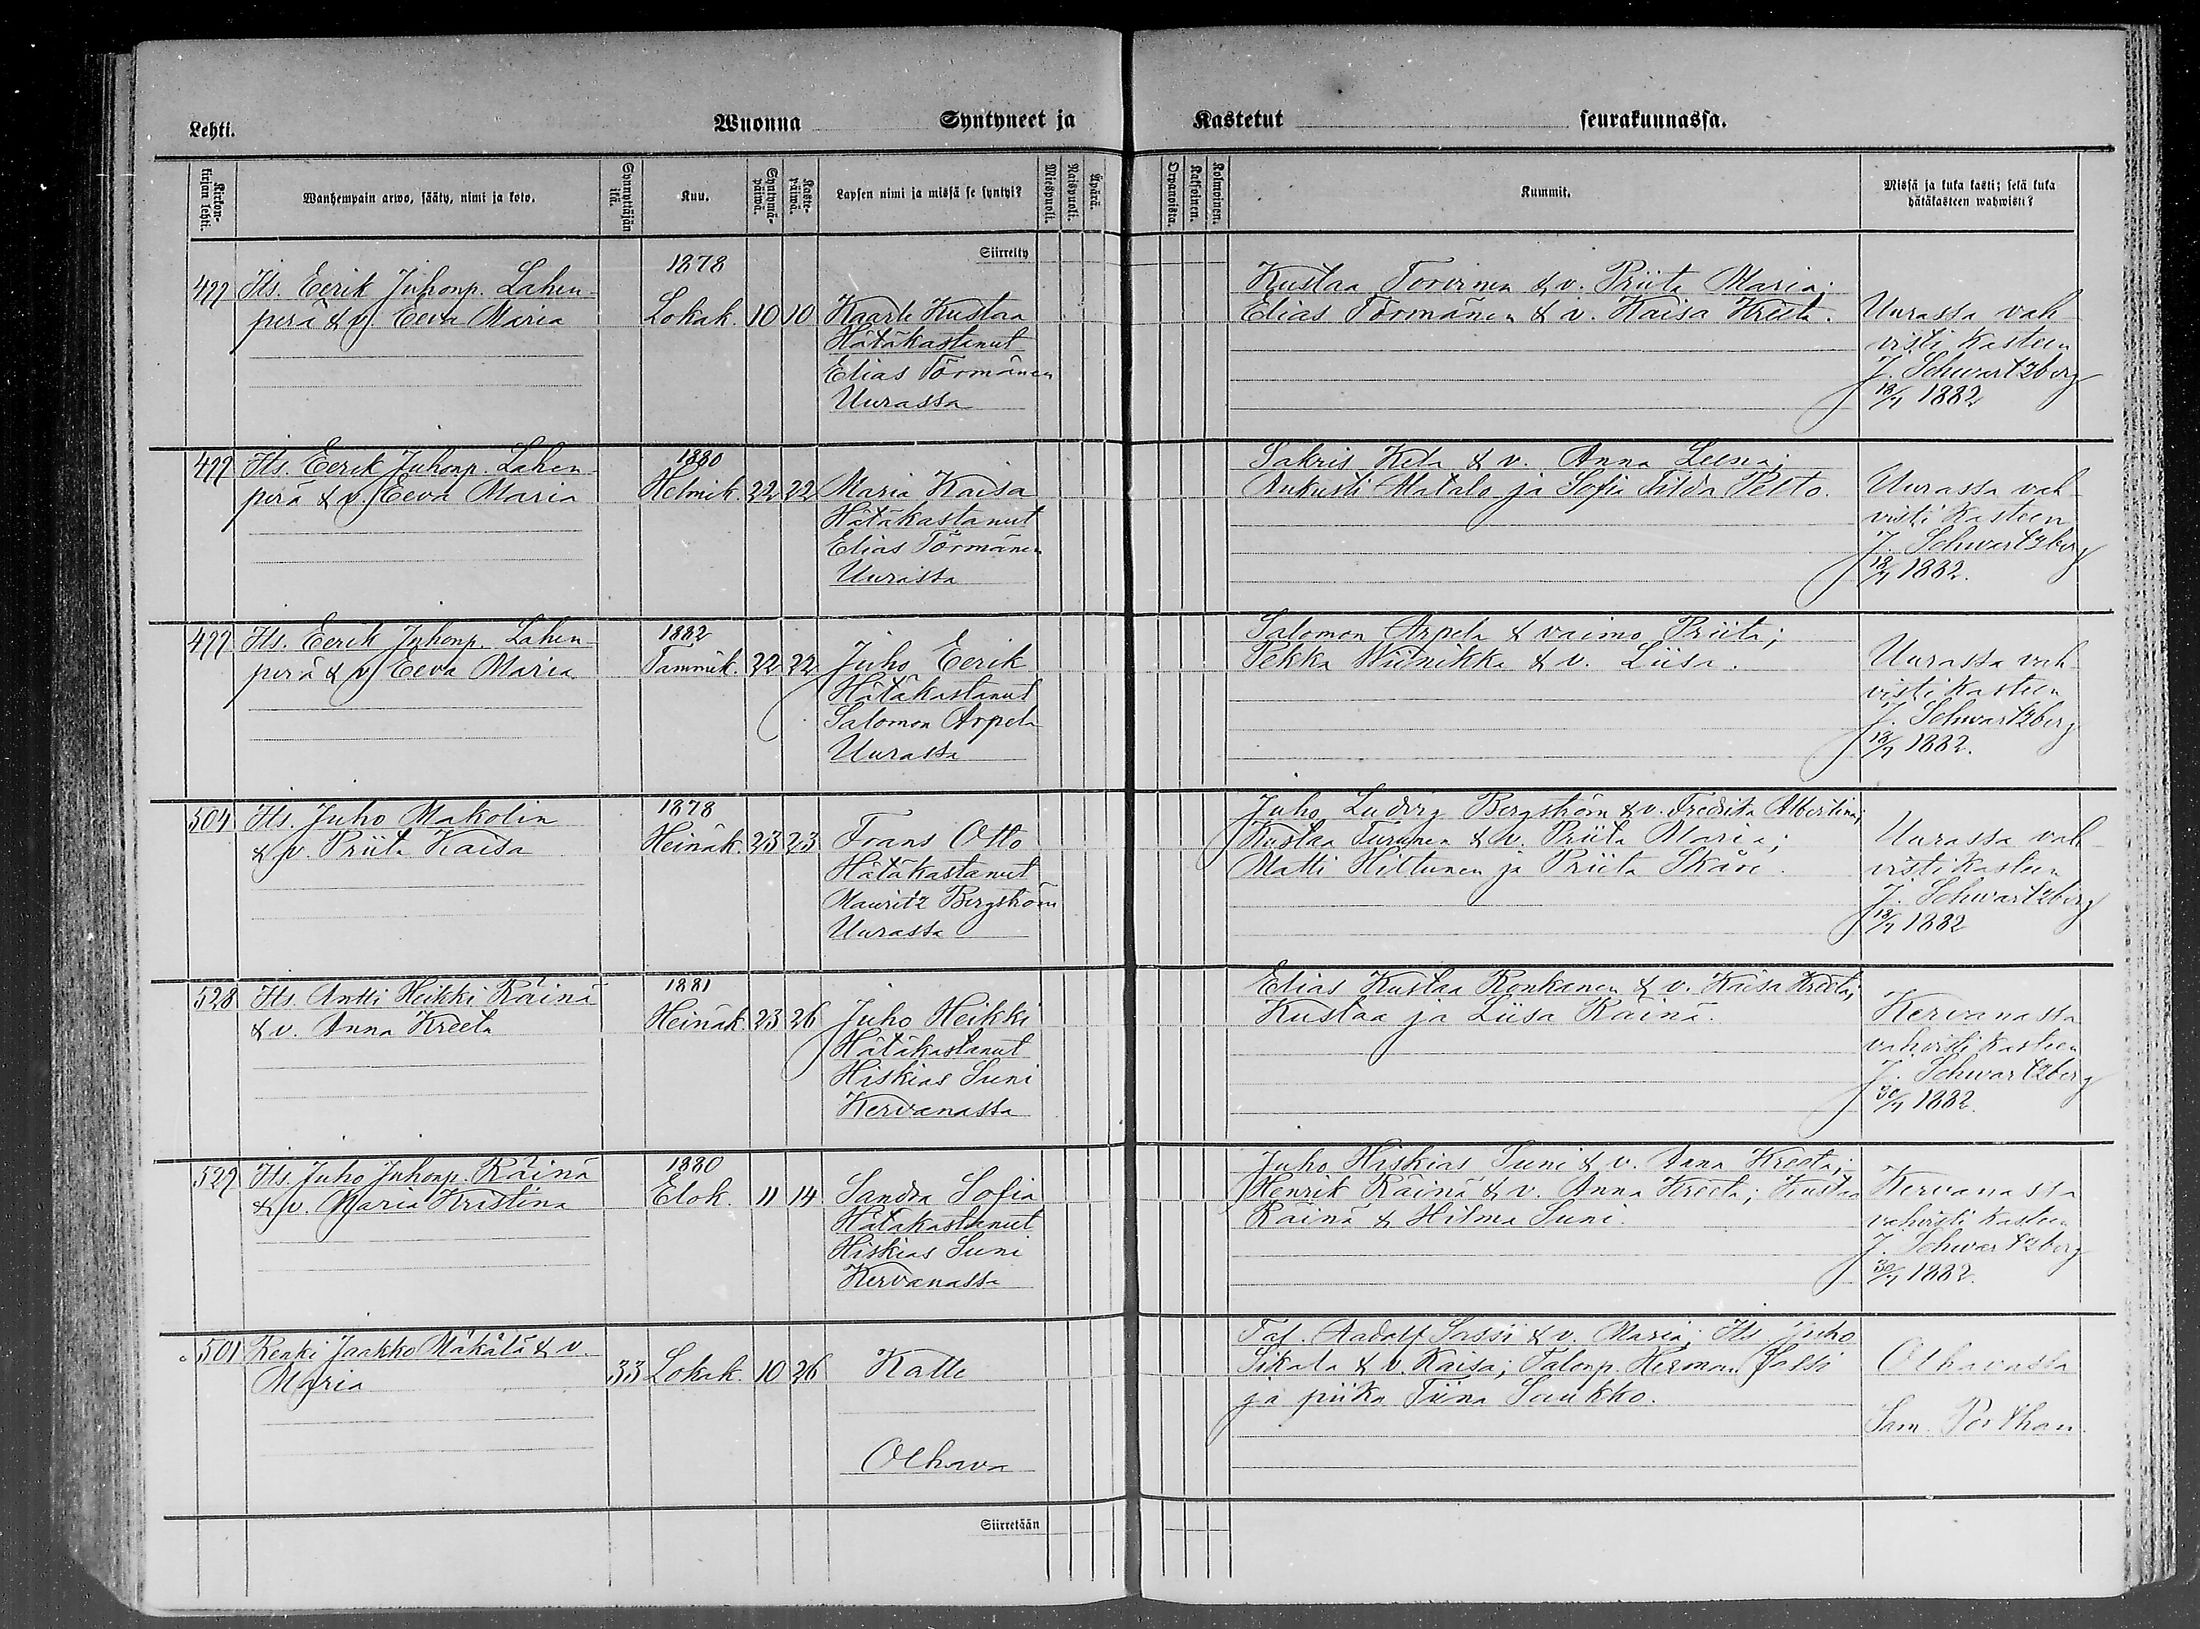 Lehti. Wuonna Syntyneet ja Kastetut seurakunnassa.
Kirkonkirjan lehti. Wanhempain arwo, sääty, nimi ja koto. Synnyttäjän ikä. Kuu. Syntymäpäiwä. Kastepäiwä. Lapsen nimi ja missä se syntyi? Miespuoli. Naispuoli. Äpärä. Orpanoista. Kaksoinen. Kolmoinen. Kummit. Missä ja kuka kasti; sekä kuka hätäkasteen wahwisti?
Siirretty
1878
499 Its. Eerik Juhonp. Lahen-
perä & v. Eeva Maria
Lokak. 10 10 Kaarle Kustaa
Hätäkastanut
Elias Törmänen
Uurassa
Kustaa Torvinen & v. Priita Maria;
Elias Törmänen & v. Kaisa Kreeta.
Uurassa vah-
visti kasteen
J. Schwartzberg
18/7 1882
499 Its. Eerik Juhonp. Lahen-
perä & v. Eeva Maria
1880
Helmik. 22 22 Maria Kaisa
Hätäkastanut
Elias Törmänen
Uurassa
Sakris Kela & v. Anna Leena;
Aukusti Matalo ja Sofia Tilda Pelto.
Uurassa vah-
visti kasteen
J. Schwartzberg
18/7 1882.
499 Its. Eerik Juhonp. Lahen-
perä & v. Eeva Maria
1882
Tammik. 22 22 Juho Eerik
Hätäkastanut
Salomon Arpela
Uurassa
Salomon Arpela & vaimo Priita;
Pekka Wiinikka & v. Liisa.
Uurassa vah-
visti kasteen
J. Schwartzberg
18/7 1882.
504 Its. Juho Makolin
& v. Priita Kaisa
1878
Heinäk. 23 23 Frans Otto
Hätäkastanut
Mauritz Bergström
Uurassa
Juho Ludvig Bergström & v. Fredika Albertina;
Kustaa Turunen & v. Priita Maria;
Matti Hiltunen ja Priita Skåre.
Uurassa vah-
visti kasteen
J. Schwartzberg
18/7 1882
528 Its. Antti Heikki Räinä
& v. Anna Kreeta
1881
Heinäk. 23 26 Juho Heikki
Hätäkastanut
Hiskias Suni
Kervanassa
Elias Kustaa Ronkanen & v. Kaisa Kreeta;
Kustaa ja Liisa Räinä.
Kervanassa
vahvisti kasteen
J. Schwartzberg
30/7 1882.
529 Its. Juho Juhonp. Räinä
& v. Maria Kristina
1880
Elok. 11 14 Sandra Sofia
Hätäkastanut
Hiskias Suni
Kervanassa
Juho Hiskias Suni & v. Anna Kreeta;
Henrik Räinä & v. Anna Kreeta; Kustaa
Räinä & Hilma Suni.
Kervanassa
vahvisti kasteen
J. Schwartzberg
30/7 1882.
501 Renki Jaakko Mäkälä & v.
Maria
33 Lokak. 10 26 Kalle
Olhava
Tal. Aadolf Sassi & v. Maria; Its. Juho
Sikala & v. Kaisa; Talonp. Herman Sassi
ja piika Tiina Saukko.
Olhavassa
Sam. Porthan.
Siirretään